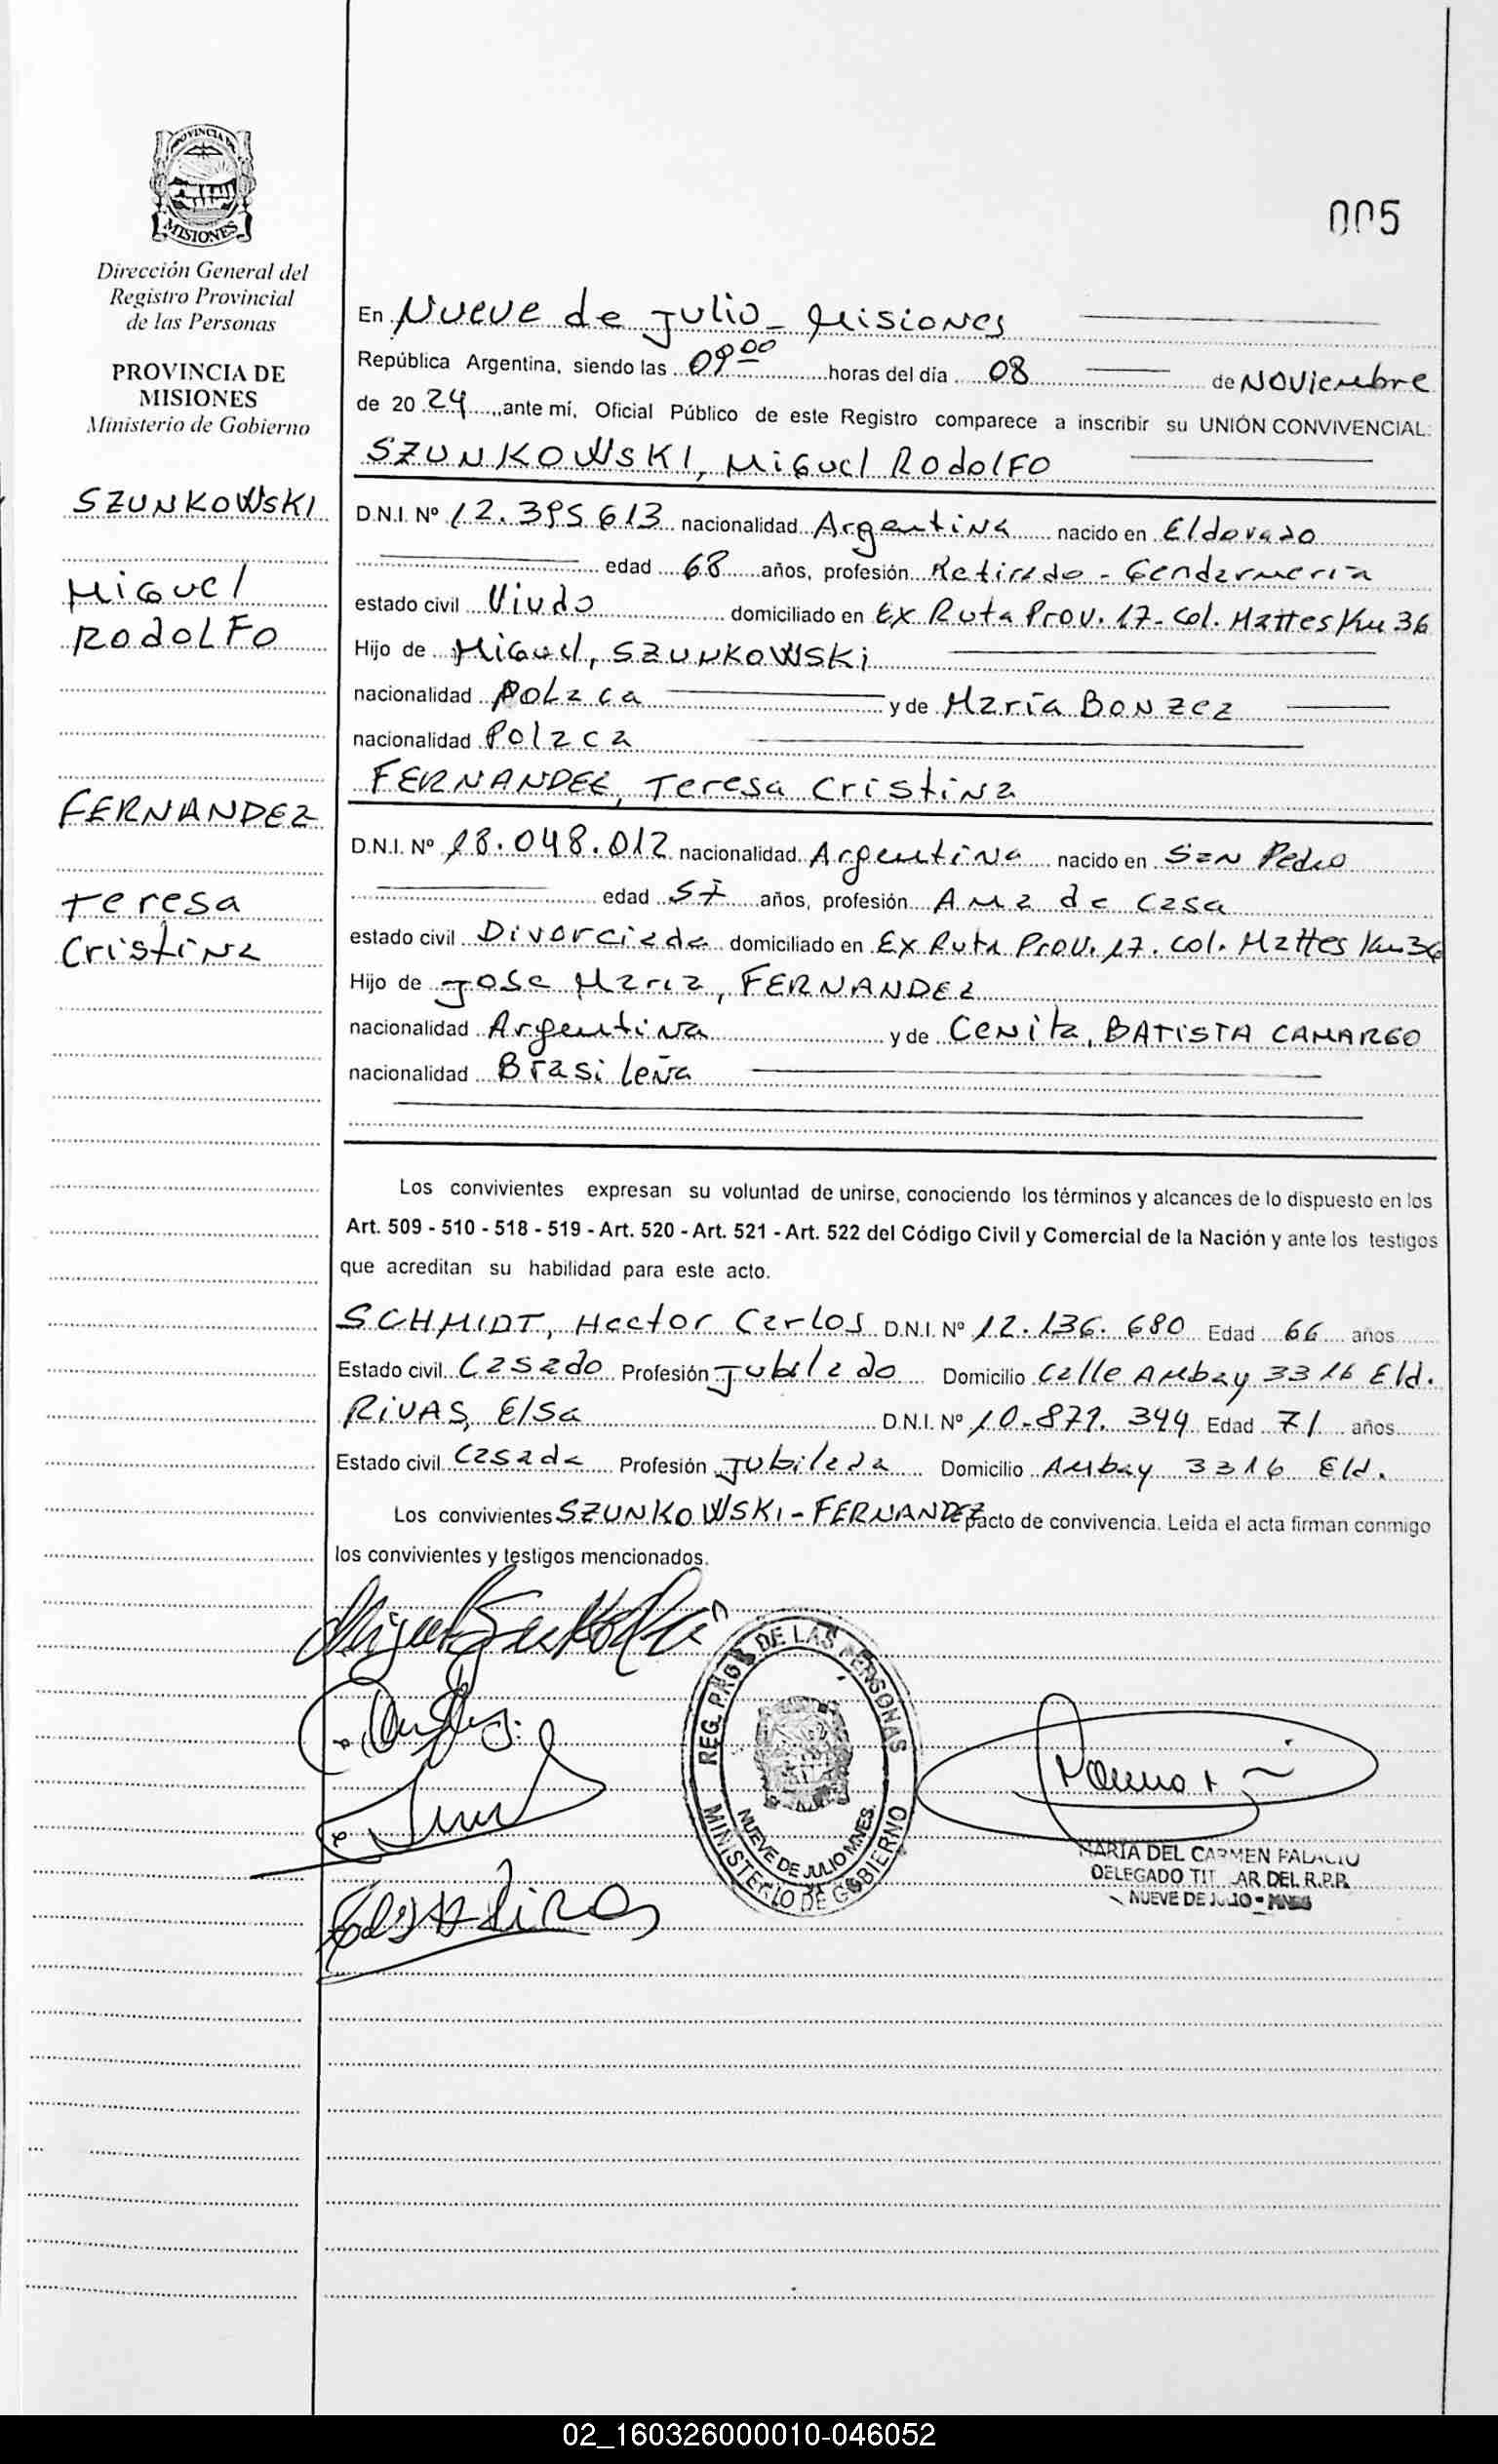 PROVINCIA DE
MISIONES
Dirección General del
Registro Provincial
de las Personas
PROVINCIA DE
MISIONES
Ministerio de Gobierno
SZUNKOWSKI
Miguel
Rodolfo
FERNANDEZ
Teresa
Cristina
005
En Nueve de Julio - Misiones
República Argentina, siendo las 09 00 horas del día 08 de Noviembre
de 20 24 ,ante mí, Oficial Público de este Registro comparece a inscribir su UNIÓN CONVIVENCIAL:
SZUNKOWSKI, Miguel Rodolfo
D.N.I. Nº 12.395613 nacionalidad Argentina nacido en Eldorado
edad 68 años, profesión Retirado - Gendarmeria
estado civil Viudo domiciliado en Ex Ruta Prov. 17 - Col. Mattes Km 36
Hijo de Miguel, SZUNKOWSKi
nacionalidad Polaca y de María Bonzez
nacionalidad Polaca
FERNANDEZ, Teresa Cristina
D.N.I. Nº 18.048.012 nacionalidad Argentina nacido en San Pedro
edad 57 años, profesión Ama de Casa
estado civil Divorciada domiciliado en Ex Ruta Prov. 17. Col. Mattes Km 36
Hijo de Jose Maria, FERNANDEZ
nacionalidad Argentina y de Cenita, BATISTA CAMARGO
nacionalidad Brasileña
Los convivientes expresan su voluntad de unirse, conociendo los términos y alcances de lo dispuesto en los
Art. 509 - 510 - 518 - 519 - Art. 520 - Art. 521 - Art. 522 del Código Civil y Comercial de la Nación y ante los testigos
que acreditan su habilidad para este acto.
SCHMIDT, Hector Carlos D.N.I. Nº 12.136.680 Edad 66 años
Estado civil Casado Profesión Jubilado Domicilio Calle Ambay 3316 Eld.
RIVAS, Elsa D.N.I. Nº 10.871.344 Edad 71 años
Estado civil Casada Profesión Jubilada Domicilio Ambay 3316 Eld.
Los convivientes SZUNKOWSKI - FERNANDEZ pacto de convivencia. Leída el acta firman conmigo
los convivientes y testigos mencionados.
REG. PROV. DE LAS PERSONAS
NUEVE DE JULIO MNES.
MINISTERIO DE GOBIERNO
MARIA DEL CARMEN PALACIO
DELEGADO TITULAR DEL R.P.P.
NUEVE DE JULIO - MNES
02_160326000010-046052